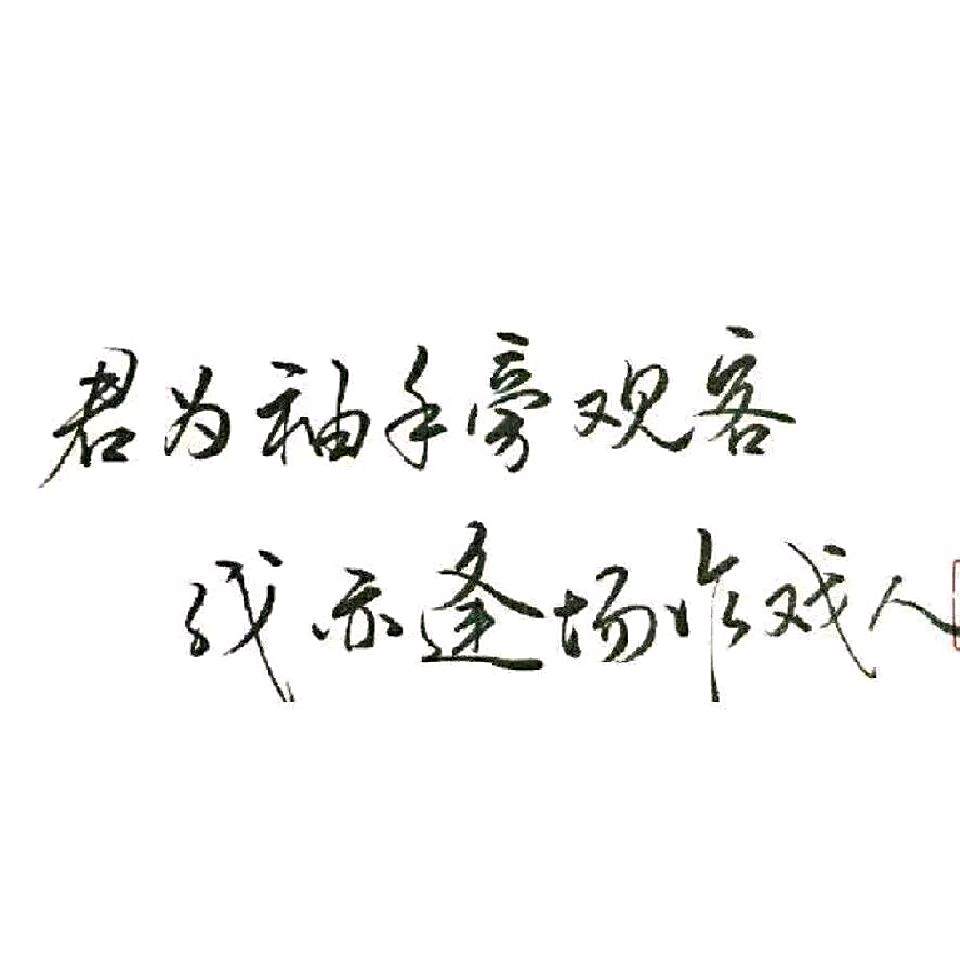 君为袖手旁观客
我亦逢场作戏人